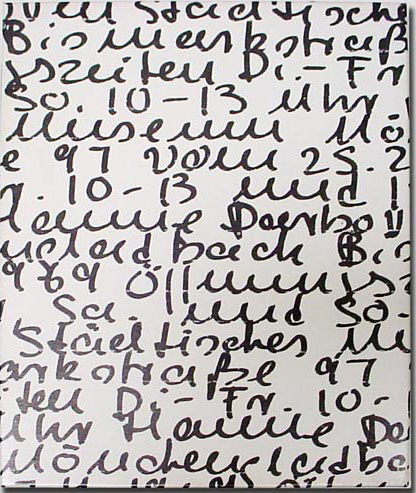 Städtisch
Bismarkstraß
gszeiten Di.-Fr
So. 10-13 Uhr
Museum Mö
e 97 vom 25.2
r. 10-13 und 1
Hanne Darbov
ngladbach Bis
969 Öffnungsz
Sa. und So.
Städtisches Mu
arkstraße 97
ten Di.- Fr. 10-
Uhr Hanne Da
Mönchengladba